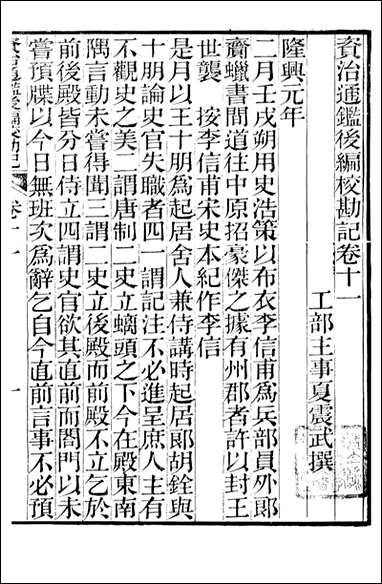 資治通鑑後編校勘記卷十一
工部主事夏震武撰
隆興元年
二月壬戌朔用史浩策以布衣李信甫爲兵部員外郎
齎蠟書間道往中原招豪傑之據有州郡者許以封王
世襲　按李信甫宋史本紀作李信
是月以王十朋爲起居舍人兼侍講時起居郎胡銓與
十朋論史官失職者四一謂記注不必進呈庶人主有
不觀史之美二謂唐制二史立螭頭之下今在殿東南
隅言動未嘗得聞三謂二史立後殿而前殿不立乞於
前後殿皆分日侍立四謂史官欲其直前而閤門以未
嘗預牒以今日無班次爲辭乞自今直前言事不必預
卷十一
一